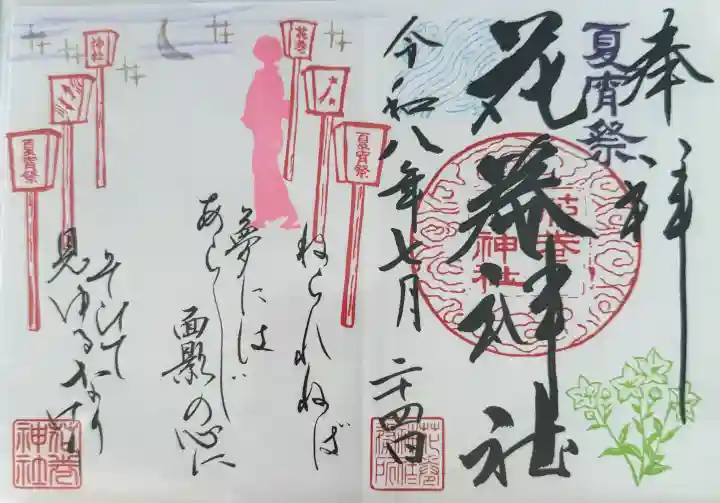 奉拝
夏宵祭
花巻神社
花巻
神社
令和八年七月二十四日
花巻
夏宵祭
神社
夏宵祭
ねられねば
夢には
あらし
面影の心に
そひて
見ゆるなりけり
花巻
神社